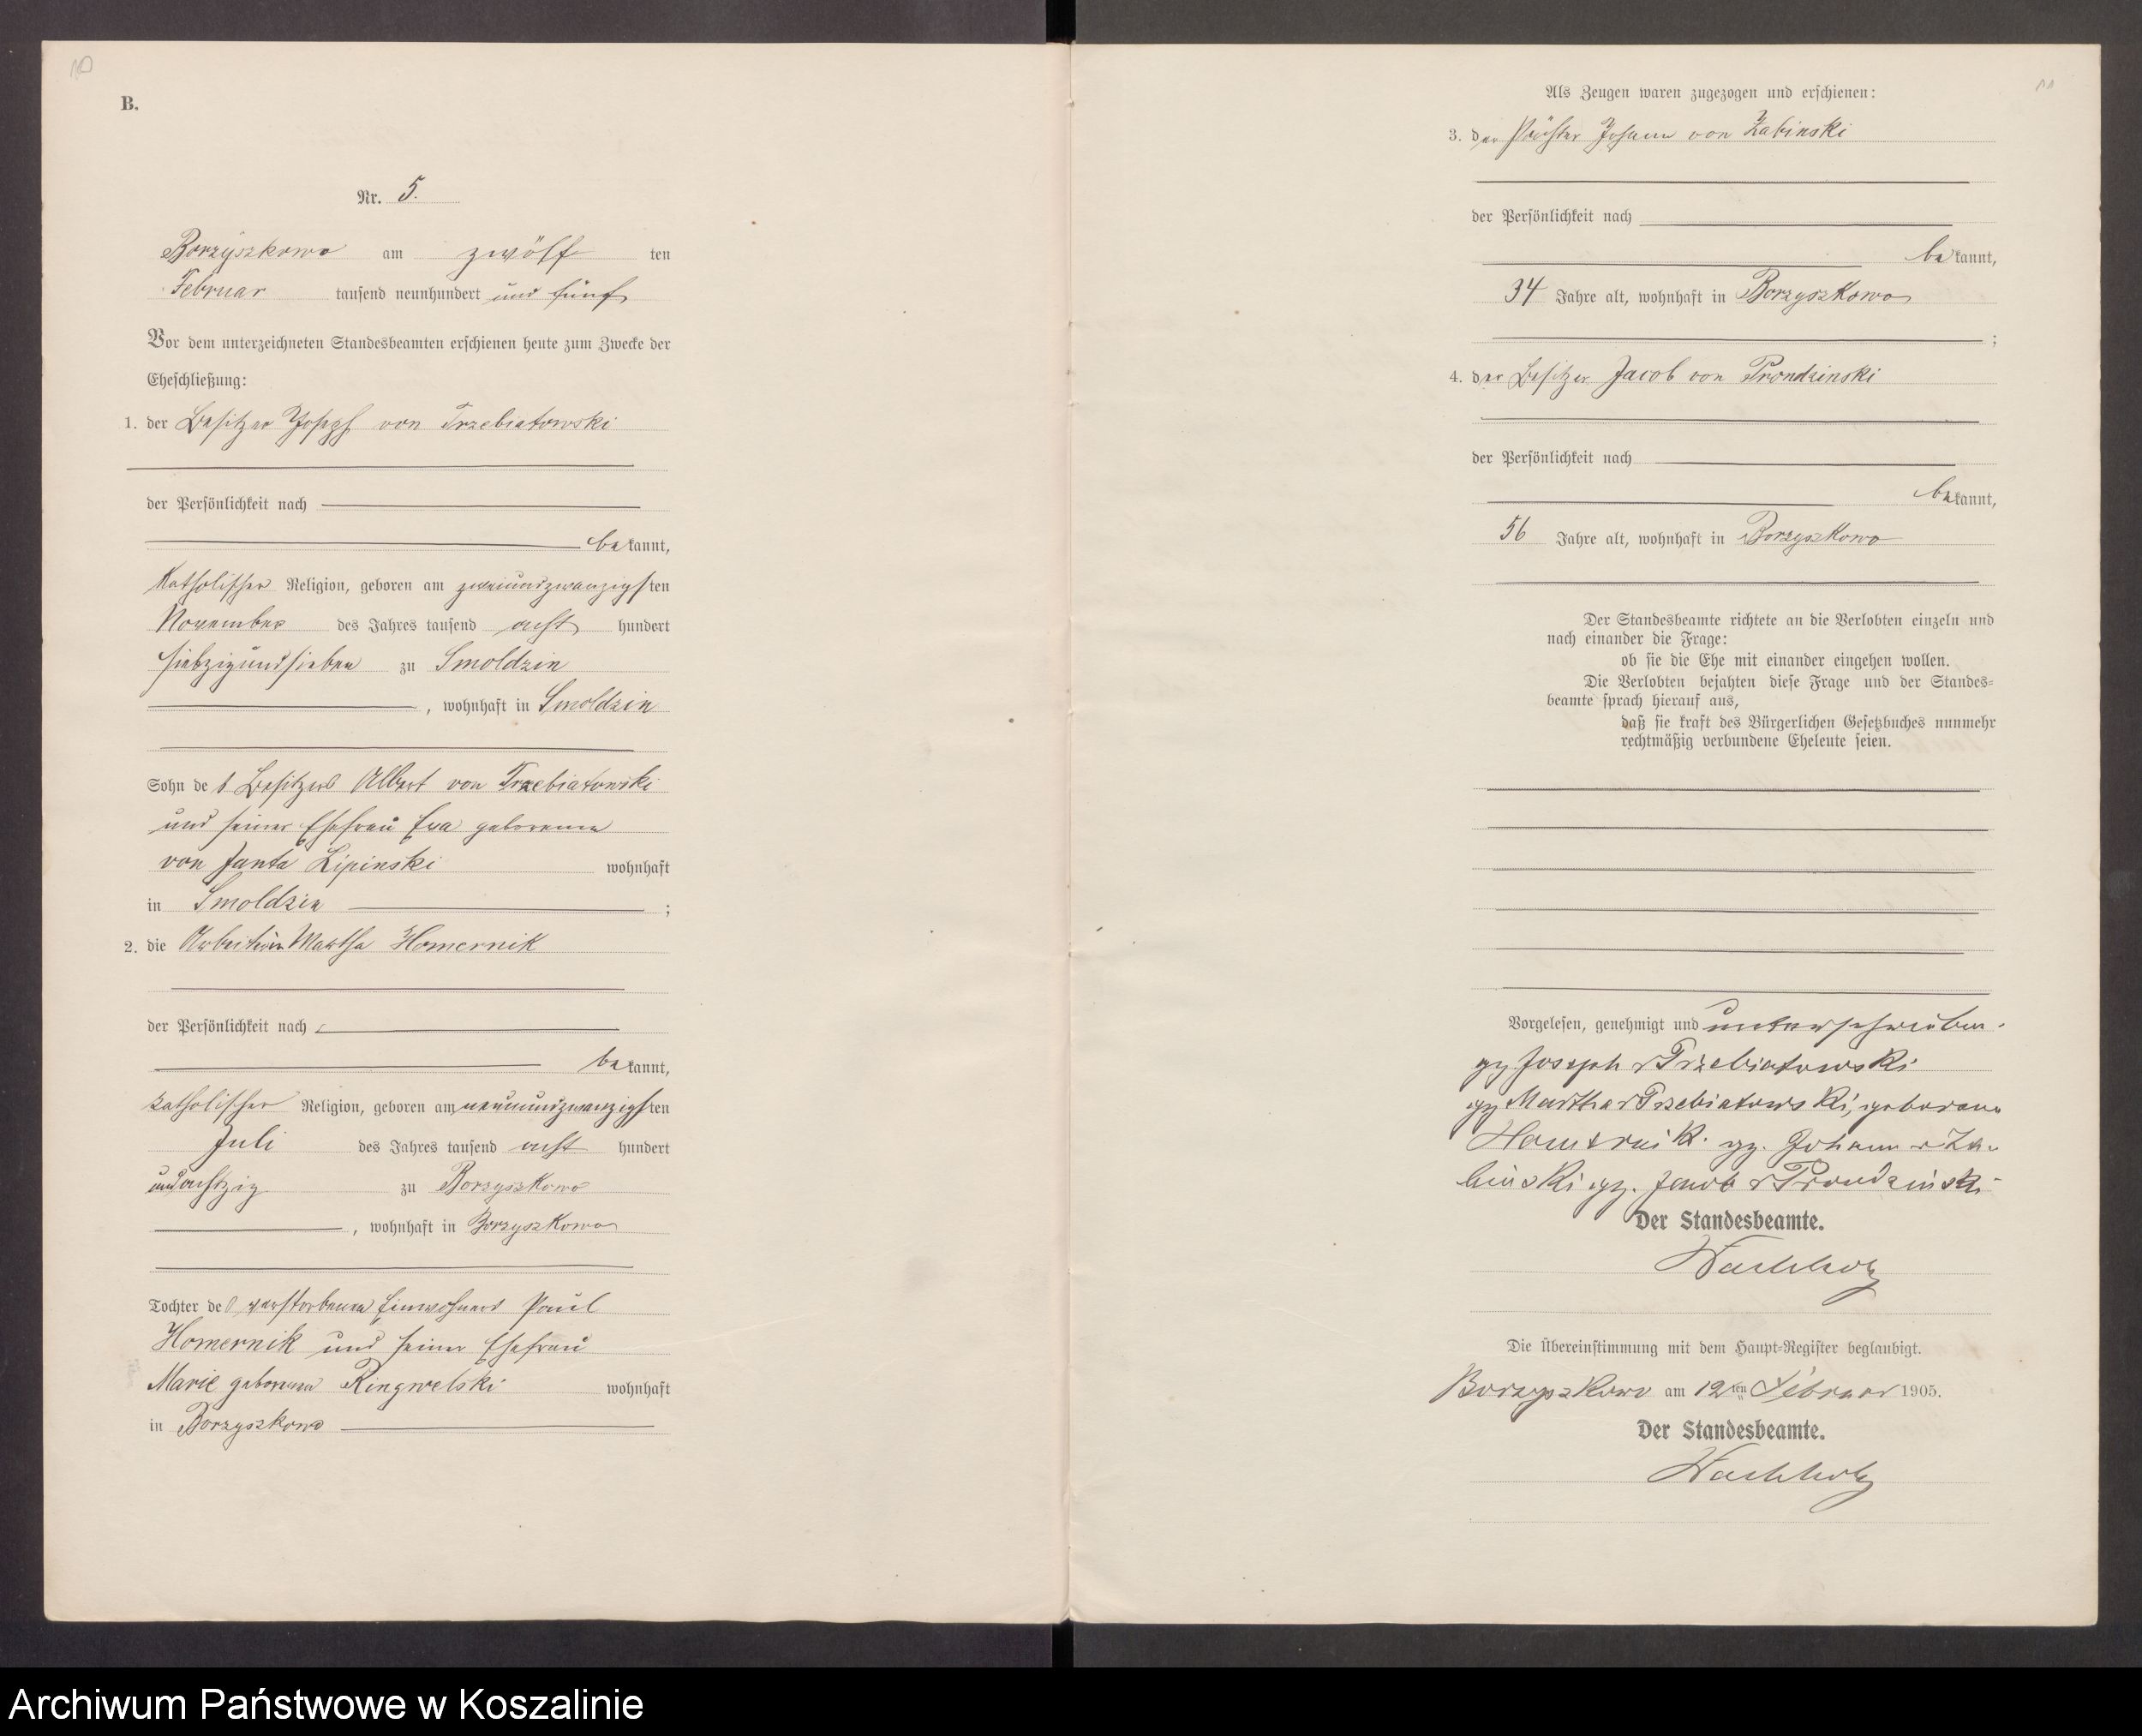 10
B.
Nr. 5.
Borzyszkowo am zwölf ten
Februar tausend neunhundert und fünf
Vor dem unterzeichneten Standesbeamten erschienen heute zum Zwecke der
Eheschließung:
1. der Besitzer Joseph von Trzebiatowski
der Persönlichkeit nach
bekannt,
katholischer Religion, geboren am zweiundzwanzigsten
November des Jahres tausend acht hundert
siebzigundsieben zu Smoldzin
, wohnhaft in Smoldzin
Sohn des Besitzers Albert von Trzebiatowski
und seiner Ehefrau Eva geborenen
von Janta Lipinski wohnhaft
in Smoldzin ;
2. die Arbeiterin Martha Homernik
der Persönlichkeit nach
bekannt,
katholischer Religion, geboren am neunundzwanzigsten
Juli des Jahres tausend acht hundert
undachtzig zu Borzyszkowo
, wohnhaft in Borzyszkowo
Tochter des verstorbenen Einwohners Paul
Homernik und seiner Ehefrau
Marie geborenen Ringwelski wohnhaft
in Borzyszkowo
11
Als Zeugen waren zugezogen und erschienen:
3. der Pächter Johann von Zabinski
der Persönlichkeit nach
bekannt,
34 Jahre alt, wohnhaft in Borzyszkowo
;
4. der Besitzer Jacob von Prondzinski
der Persönlichkeit nach
bekannt,
56 Jahre alt, wohnhaft in Borzyszkowo
Der Standesbeamte richtete an die Verlobten einzeln und
nach einander die Frage:
ob sie die Ehe mit einander eingehen wollen.
Die Verlobten bejahten diese Frage und der Standes-
beamte sprach hierauf aus,
daß sie kraft des Bürgerlichen Gesetzbuches nunmehr
rechtmäßig verbundene Eheleute seien.
Vorgelesen, genehmigt und unterschrieben.
gz Joseph v Trzebiatowski
gz Martha v Trzebiatowski, geborene
Homernik. gz. Johann v Za-
binski gz. Jacob v Prondzinski
Der Standesbeamte.
Wachholz
Die Übereinstimmung mit dem Haupt-Register beglaubigt.
Borzyszkowo am 12ten Februar 1905.
Der Standesbeamte.
Wachholz
Archiwum Państwowe w Koszalinie